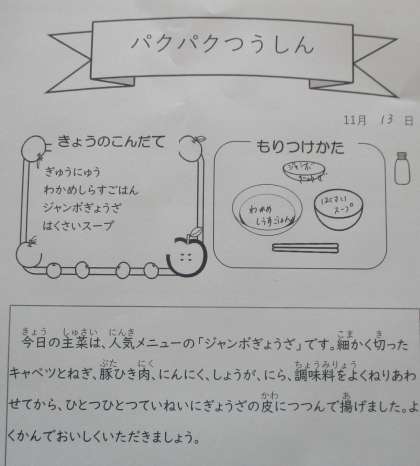 パクパクつうしん
11月 13 日
きょうのこんだて
ぎゅうにゅう
わかめしらすごはん
ジャンボぎょうざ
はくさいスープ
もりつけかた
ジャンボ
ぎょうざ
わかめ
しらすごはん
はくさい
スープ
きょう しゅさい にんき こま き
今日の主菜は、人気メニューの「ジャンボぎょうざ」です。細かく切った
ぶた にく ちょうみりょう
キャベツとねぎ、豚ひき肉、にんにく、しょうが、にら、調味料をよくねりあわ
かわ あ
せてから、ひとつひとつていねいにぎょうざの皮につつんで揚げました。よ
くかんでおいしくいただきましょう。